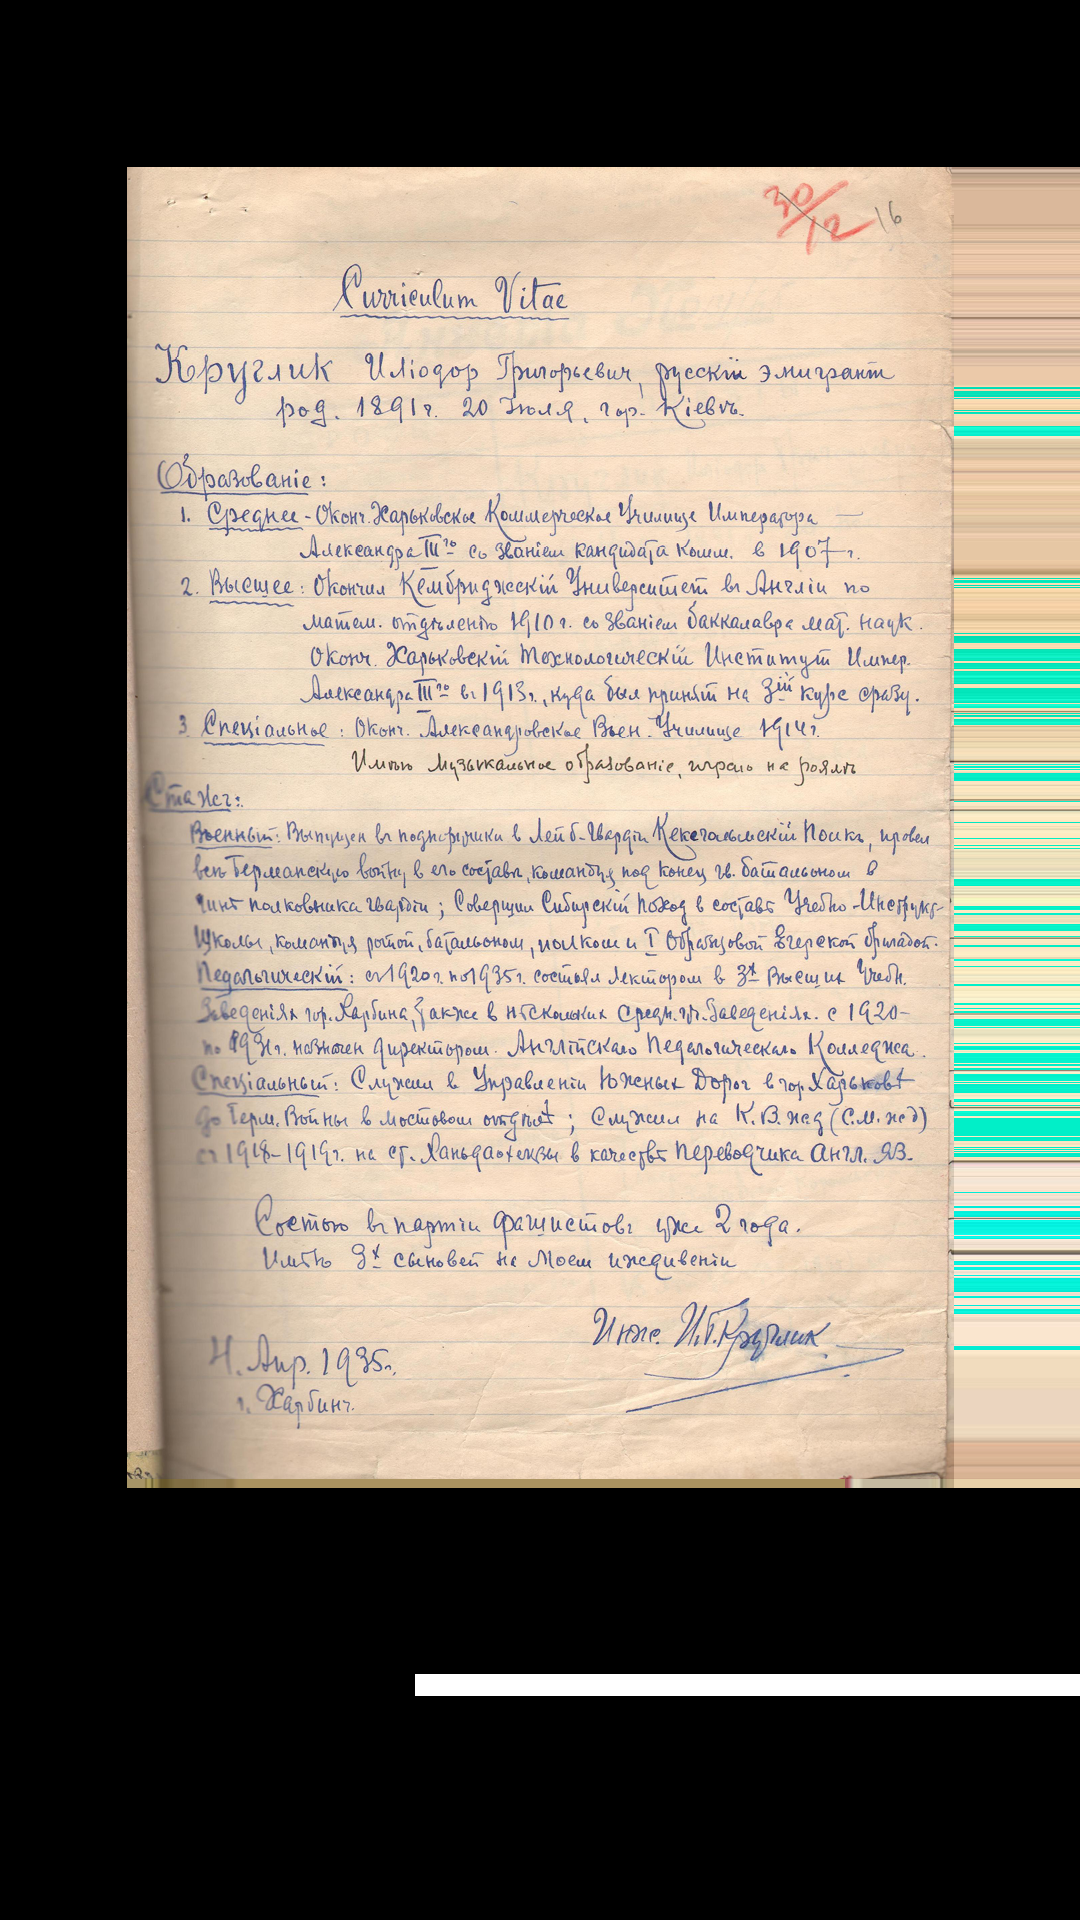 30/12 16
Curriculum Vitae
Круглик Иліодор Григорьевич, русскій эмигрант
род. 1891г. 20 Іюля, гор. Кіевъ.
Образованіе:
1. Среднее - Оконч. Харьковское Коммерческое Училище Императора —
Александра III го со званіем кандидата комм. в 1907 г.
2. Высшее: Окончил Кембриджскій Университет въ Англіи по
матем. отдѣленію 1910 г. со званіем баккалавра мат. наук.
Оконч. Харьковскій Технологическій Институт Импер.
Александра III го въ 1913г., куда был принят на 3ій курс сразу.
3. Спеціальное: Оконч. Александровское Воен. Училище 1914г.
Имѣю музыкальное образованіе, играю на роялѣ
Стажъ:
Военный: Выпущен въ подпоручики в Лейб-Гвардіи Кексгольмскій Полкъ, провел
всю Германскую войну в его составѣ, командуя под конец гв. батальоном в
чинѣ полковника гвардіи; Совершил Сибирскій Поход в составѣ Учебно-Инструкт-
Школы, командуя ротой, батальоном, полком и I Образцовой Егерской бригадой.
Педагогическій: съ 1920г. по 1935г. состоял лектором в 3х Высших Учебн.
Заведеніях гор. Харбина, также в нѣскольких средн. уч. Заведеніях. с 1920-
по 1931г. назначен директором. Англійскаго Педагогическаго Колледжа.
Спеціальный: Служил в Управленіи Южных Дорог в гор. Харьковѣ
до Герм. Войны в мостовом отдѣлѣ; служил на К.В.жд (С.М.жд)
съ 1918-1919г. на ст. Ханьдаохецзы в качествѣ переводчика англ. яз.
Состою въ партіи фашистовъ уже 2 года.
Имѣю 3х сыновей на моем иждивеніи
Инж. И.Г.Круглик
4. Апр. 1935г.
г. Харбинъ.